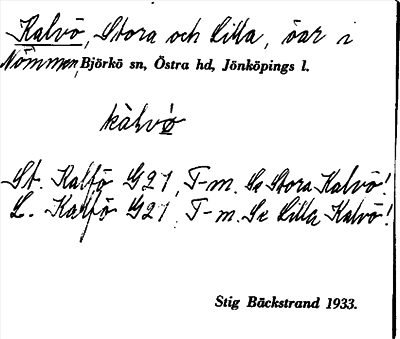 Kalvö, Stora och Lilla, öar i
Nömmen, Björkö sn, Östra hd, Jönköpings l.
kàlvö́
St. Kalfö G21, T-m. Se Stora Kalvö!
L. Kalfö G21, T-m. Se Lilla Kalvö!
Stig Bäckstrand 1933.